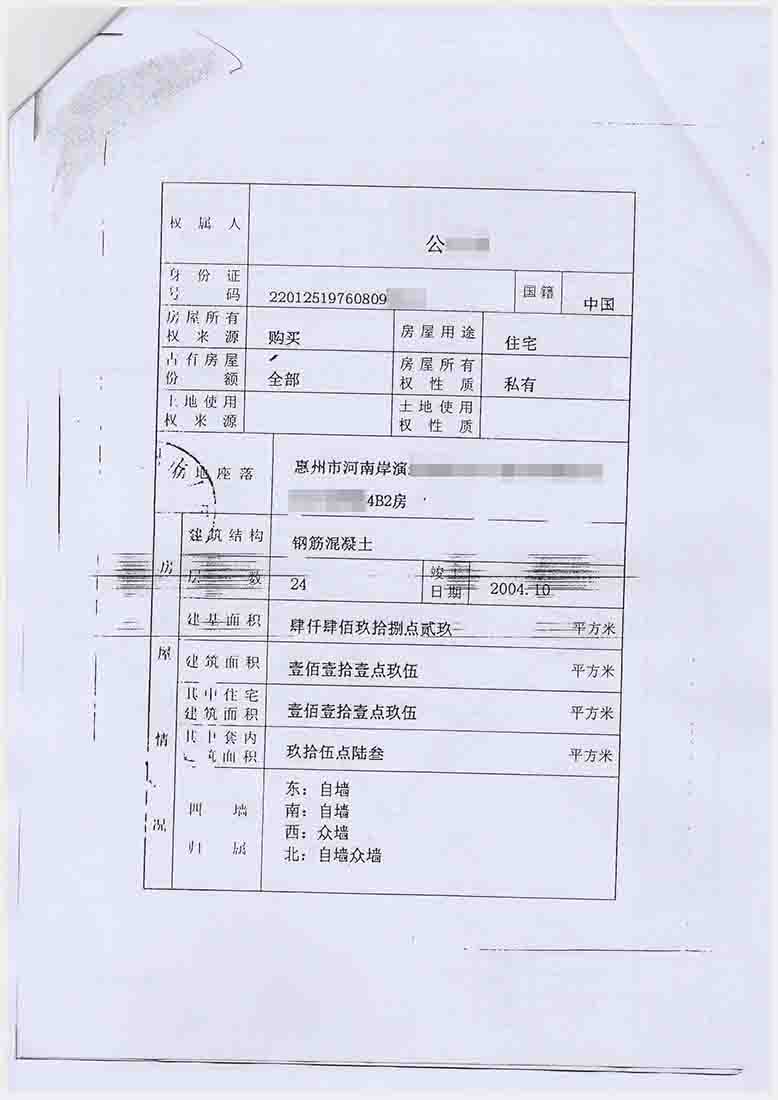 权属人 公
身份证号码 22012519760809 国籍 中国
房屋所有权来源 购买 房屋用途 住宅
占有房屋份额 全部 房屋所有权性质 私有
土地使用权来源 土地使用权性质
房地座落 惠州市河南岸演
4B2房
房屋情况
建筑结构 钢筋混凝土
层数 24 竣工日期 2004.10
建基面积 肆仟肆佰玖拾捌点贰玖 平方米
建筑面积 壹佰壹拾壹点玖伍 平方米
其中住宅建筑面积 壹佰壹拾壹点玖伍 平方米
其中套内建筑面积 玖拾伍点陆叁 平方米
四墙归属
东：自墙
南：自墙
西：众墙
北：自墙众墙